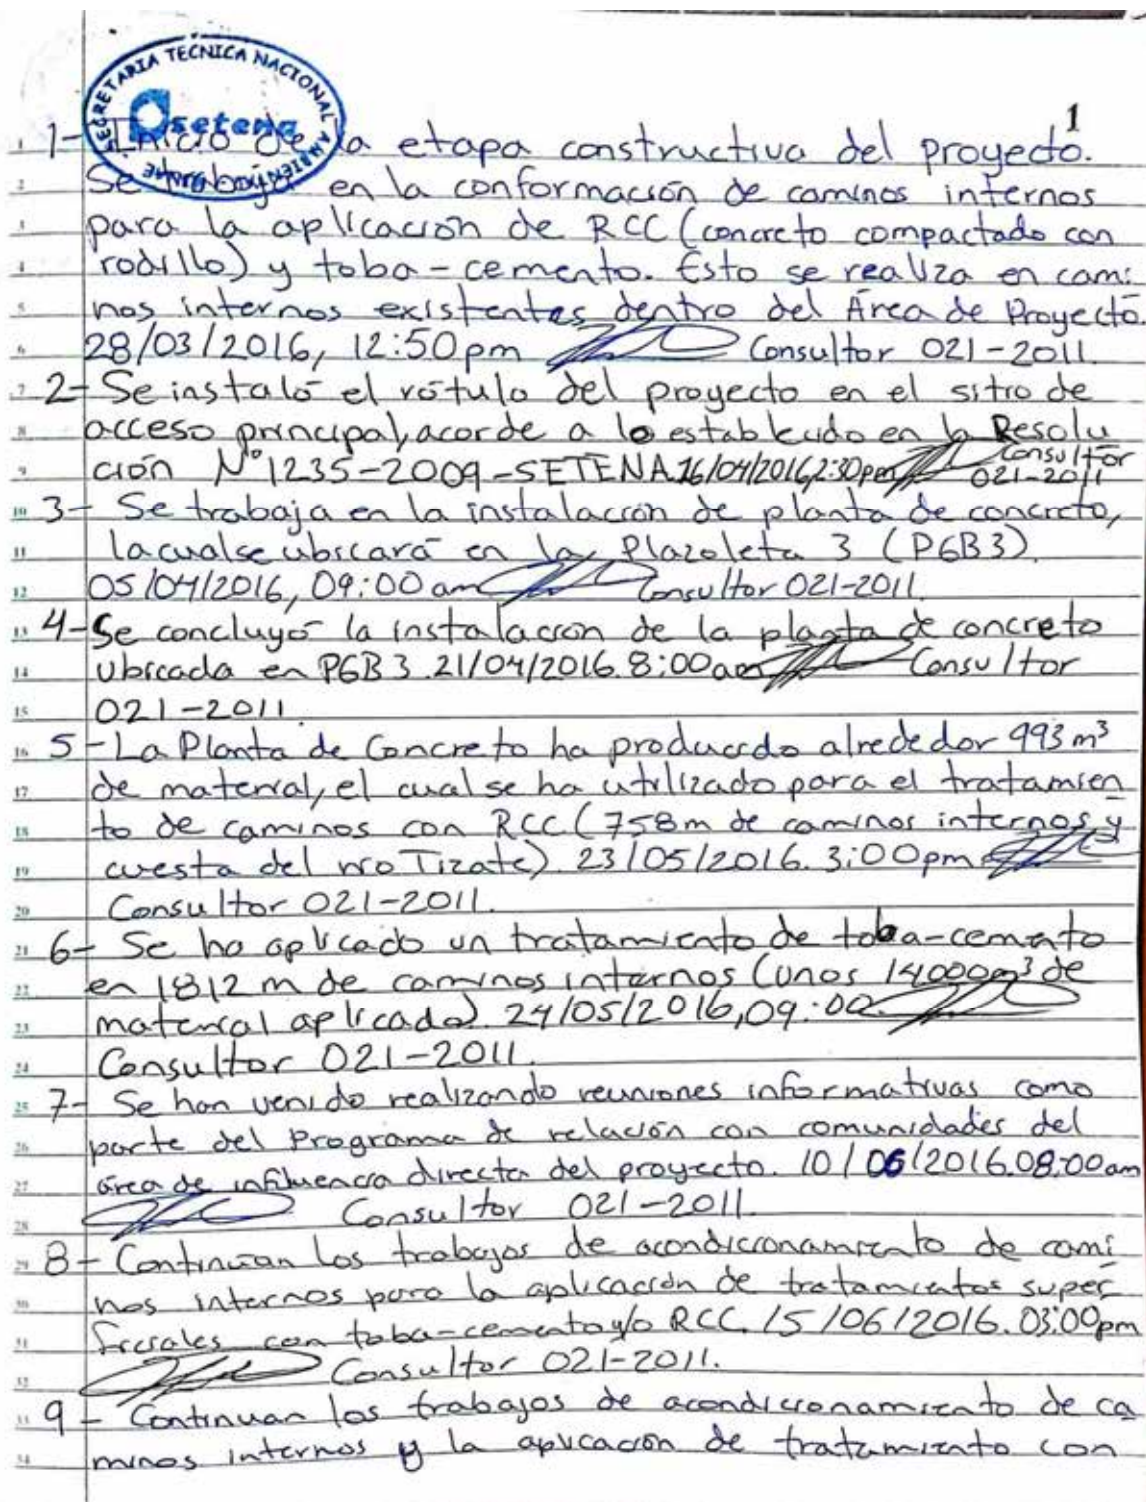 SECRETARIA TECNICA NACIONAL AMBIENTAL
setena
1
1- Inicio de la etapa constructiva del proyecto.
2 Se trabaja en la conformación de caminos internos
3 para la aplicación de RCC (concreto compactado con
4 rodillo) y toba-cemento. Esto se realiza en cami
5 nos internos existentes dentro del Área de Proyecto.
6 28/03/2016, 12:50pm Consultor 021-2011.
7 2- Se instaló el rótulo del proyecto en el sitio de
8 acceso principal, acorde a lo establecido en la Resolu
9 ción N° 1235-2009-SETENA. 16/04/2016, 2:30pm Consultor 021-2011
10 3- Se trabaja en la instalación de planta de concreto,
11 la cual se ubicará en la Plazoleta 3 (PGB3).
12 05/04/2016, 09:00 am Consultor 021-2011.
13 4- Se concluyó la instalación de la planta de concreto
14 ubicada en PGB3. 21/04/2016. 8:00am Consultor
15 021-2011.
16 5- La Planta de Concreto ha producido alrededor 993 m³
17 de material, el cual se ha utilizado para el tratamien
18 to de caminos con RCC (758m de caminos internos y
19 cuesta del río Tizate). 23/05/2016. 3:00pm
20 Consultor 021-2011.
21 6- Se ha aplicado un tratamiento de toba-cemento
22 en 1812 m de caminos internos (unos 14000m³ de
23 material aplicado). 24/05/2016, 09:00
24 Consultor 021-2011.
25 7- Se han venido realizando reuniones informativas como
26 parte del Programa de relación con comunidades del
27 área de influencia directa del proyecto. 10/06/2016. 08:00am
28 Consultor 021-2011.
29 8- Continúan los trabajos de acondicionamiento de cami
30 nos internos para la aplicación de tratamientos super
31 ficiales con toba-cemento y/o RCC. 15/06/2016. 03:00pm
32 Consultor 021-2011.
33 9- Continuan los trabajos de acondicionamiento de ca
34 minos internos y la aplicación de tratamiento con